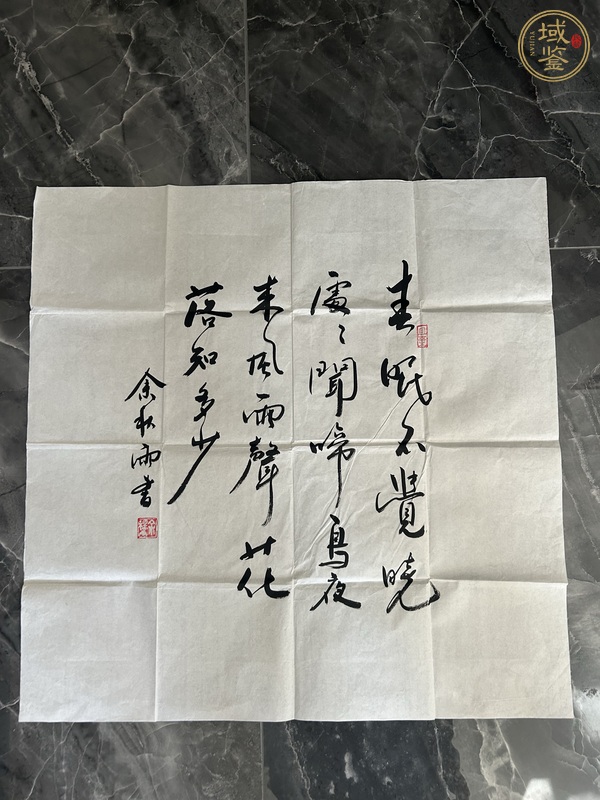 春眠不覺曉
處々聞啼鳥夜
来風雨聲花
落知多少
余秋雨書
域鉴
YUJIAN